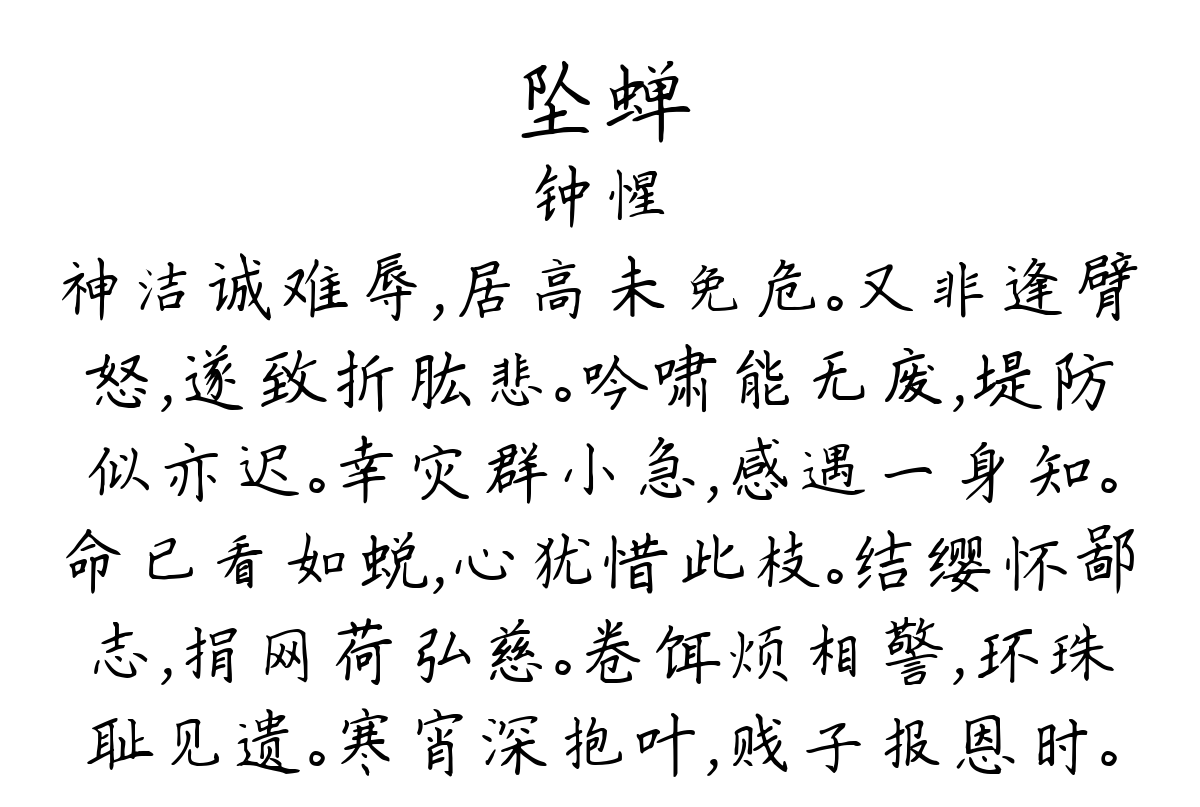 坠蝉
钟惺
神洁诚难辱,居高未免危。又非逢臂
怒,遂致折肱悲。吟啸能无废,堤防
似亦迟。幸灾群小急,感遇一身知。
命已看如蜕,心犹惜此枝。结缨怀鄙
志,捐网荷弘慈。卷饵烦相警,环珠
耻见遗。寒宵深抱叶,贱子报恩时。